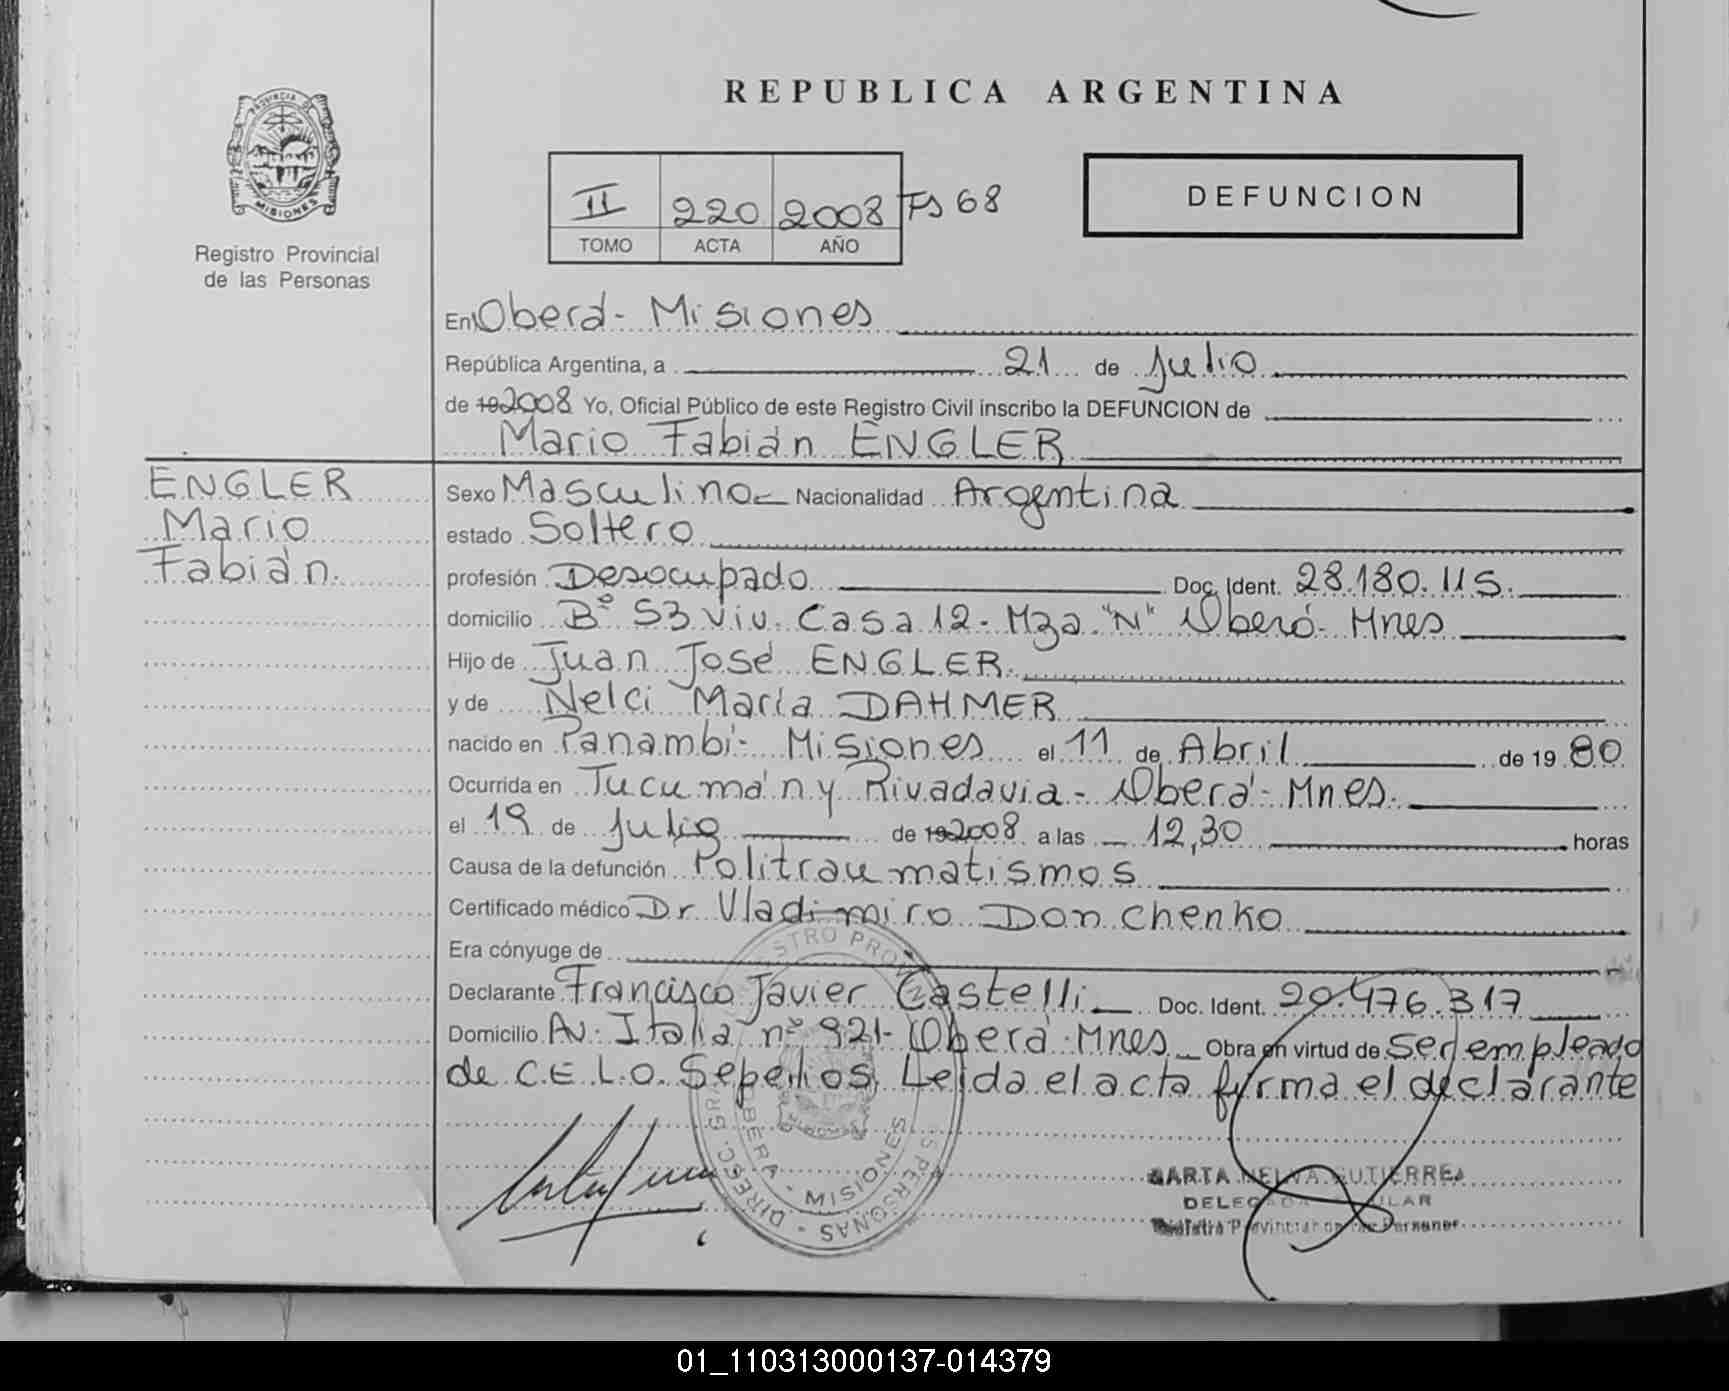 REPUBLICA ARGENTINA
PROVINCIA DE
MISIONES
Registro Provincial
de las Personas
II 220 2008 Fs 68
TOMO ACTA AÑO
DEFUNCION
En Oberá - Misiones
República Argentina, a 21 de Julio
de 19 2008 Yo, Oficial Público de este Registro Civil inscribo la DEFUNCION de
Mario Fabián ENGLER
ENGLER
Mario
Fabián.
Sexo Masculino Nacionalidad Argentina
estado Soltero
profesión Desocupado Doc. Ident. 28.180.115.
domicilio Bº 53 Viv. Casa 12 - Mza. "N" Oberá - Mnes
Hijo de Juan José ENGLER.
y de Nelci María DAHMER
nacido en Panambí - Misiones el 11 de Abril de 19 80
Ocurrida en Tucumán y Rivadavia - Oberá - Mnes.
el 19 de Julio de 19 2008 a las 12,30 horas
Causa de la defunción Politraumatismos
Certificado médico Dr Vladimiro Donchenko
Era cónyuge de
Declarante Francisco Javier Castelli Doc. Ident. 20.476.317
Domicilio Av. Italia nº 921 - Oberá - Mnes Obra en virtud de Ser empleado
de C.E.L.O. Sepelios. Leida el acta firma el declarante
OBERA - MISIONES
MARTA NELVA GUTIERREZ
DELEGADA TITULAR
Registro Provincial de las Personas
01_110313000137-014379